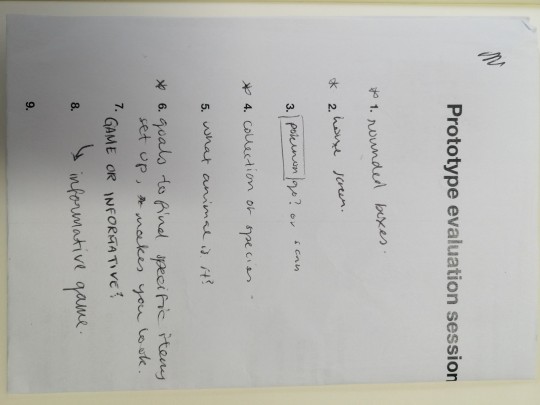 Prototype evaluation session
* 1. rounded boxes.
* 2. home screen.
3. pokemon go? or scan
* 4. collection of species.
5. what animal is it?
* 6. goals to find specific items
set up, makes you look.
7. GAME OR INFORMATIVE?
8. ↳ informative game.
9.